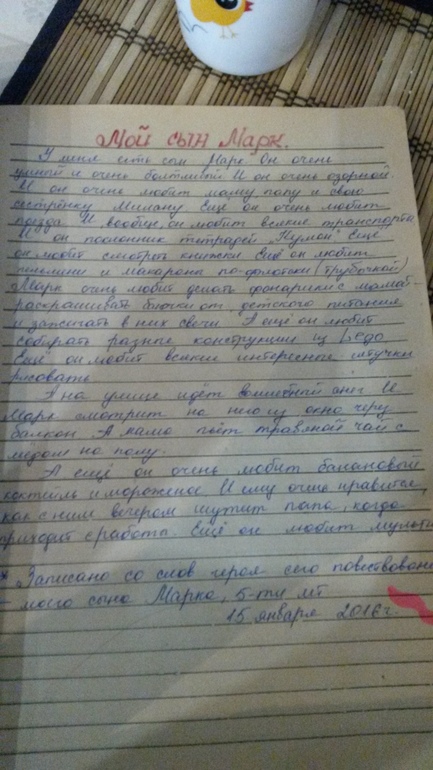 Мой сын Марк.
У меня есть сын Марк. Он очень
умный и очень болтливый. И он очень озорной.
И он очень любит маму, папу и свою
сестрёнку Милану. Ещё он очень любит
поезда. И вообще, он любит всякие транспорты.
И он поклонник тетрадей "Кумон". Ещё
он любит смотреть книжки. Ещё он любит
пельмени и макароны по-флотски (трубочкой).
Марк очень любит делать фонарики с мамой-
раскрашивать баночки от детского питания
и зажигать в них свечи. А ещё он любит
собирать разные конструкции из Lego.
Ещё он любит всякие интересные штучки
рисовать.
А на улице идёт волшебный снег. И
Марк смотрит на него из окна через
балкон. А мама пьёт травяной чай с
мёдом на полу.
А ещё он очень любит банановый
коктейль и мороженое. И ему очень нравится,
как с ним вечером шутит папа, когда
приходит с работы. Ещё он любит
* Записано со слов героя сего повествован
- моего сына Марка, 5-ти лет
15 января 2016 г.